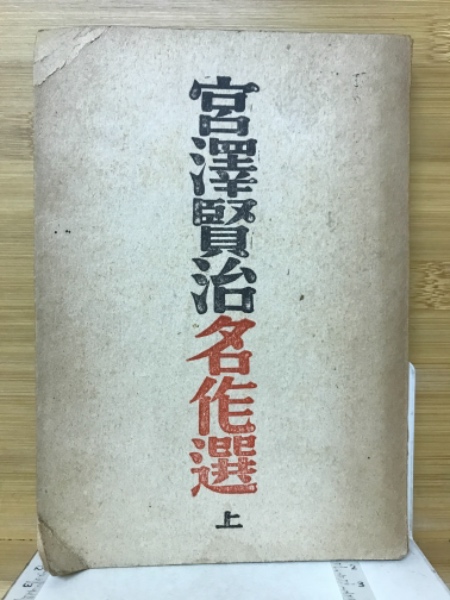 宮澤賢治名作選
上